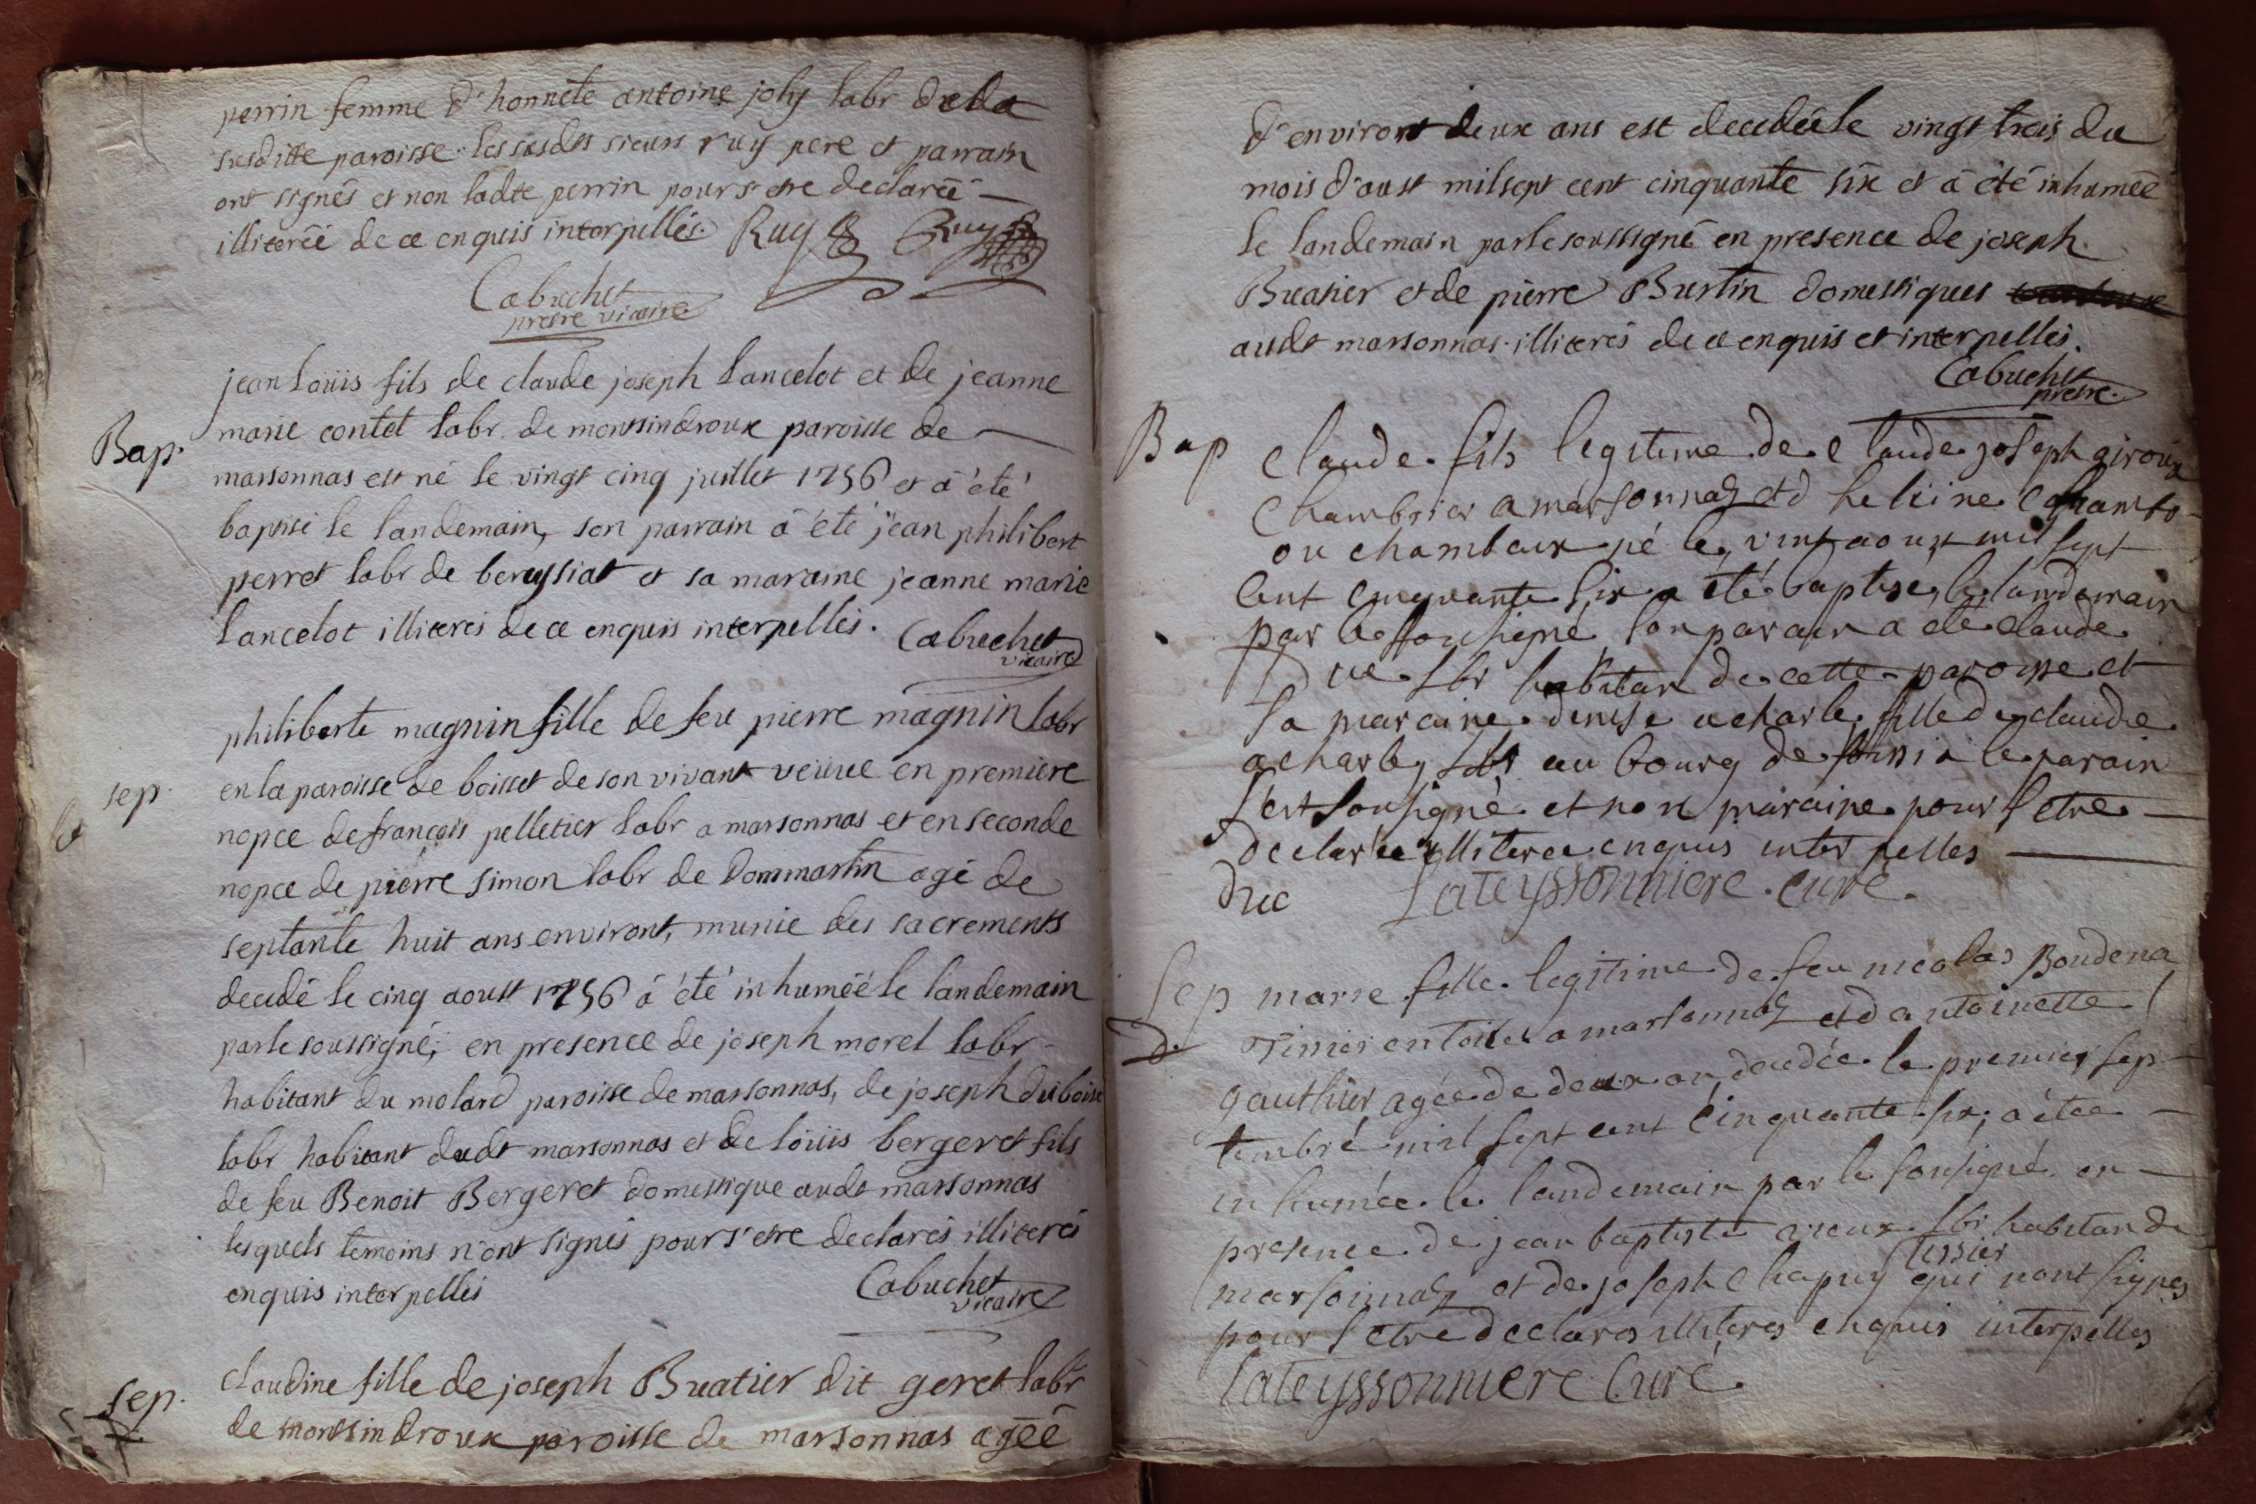 perrin femme d'honnête antoine joly labr de la
susditte paroisse. les susdts sieurs ruy pere et parrain
ont signés et non ladte perrin pour s'etre declareé
illitereé de ce enquis interpellés. Ruy Ruy
Cabuchet
prestre vicaire
jean Loüis fils de claude joseph Lancelot et de jeanne
Bap. marie contet labr. de montsindroux paroisse de
marsonnas est né le vingt cinq juillet 1756 et a été
baptisé le landemain, son parrain a été jean philibert
perret labr de bereyssiat et sa maraine jeanne marie
Lancelot illiterés de ce enquis interpellés. Cabuchet
vicaire
philiberte magnin fille de feu pierre magnin labr
sep. en la paroisse de boisset de son vivant veüve en premiere
nopce de françois pelletier labr a marsonnas et en seconde
nopce de pierre simon labr de Dommartin agé de
septante huit ans environt, munie des sacrements
decedé le cinq aoust 1756 a été inhumeé le landemain
par le soussigné; en presence de joseph morel labr
habitant du molard paroisse de marsonnas, de joseph dubois
labr habitant dudt marsonnas et de loüis bergeret fils
de feu Benoit Bergeret domestique audt marsonnas
lesquels temoins n'ont signés pour s'etre declarés illiterés
enquis interpellés Cabuchet
vicaire
claudine fille de joseph Buatier dit geret labr
sep. de montsindroux paroisse de marsonnas ageé
d'environt deux ans est decedeé le vingt trois du
mois d'aust mil sept cent cinquante six et a été inhumeé
le landemain par le soussigné en presence de joseph
Buatier et de pierre Burtin domestiques
audt marsonnas illiterés de ce enquis et interpellés.
Cabuchet
prestre.
Bap Claude fils legitime de Claude joseph giroux
Chambrier a marsonnas et d heleine
ou chambaux né le vint aoust mil sept
cent cinquante six a été baptisé le landemain
par le sousigné son parain a eté claude
Duc lbr habitan de cette paroisse et
sa maraine denise acharle fille de claude
acharle lbr au bourg de le parain
s'est sousigné et non maraine pour s'etre
declarée illiteree enquis inter pelles
Duc Lateyssonniere. curé.
Sep marie fille legitime de feu nicolas Boudena
D. Tissier en toiles a marsonnas et d antoinette
gauthier agée de deux an decedée le premier sep
tembre mil sept cent cinquante six, a étee
inhumée le landemain par le sousigné en
presence de jean baptiste vieux lbr habitan de
tissier
marsonnas et de joseph Chapuy qui nont signes
pour s etre declares illiteres enquis interpelles
Lateyssonniere Curé.